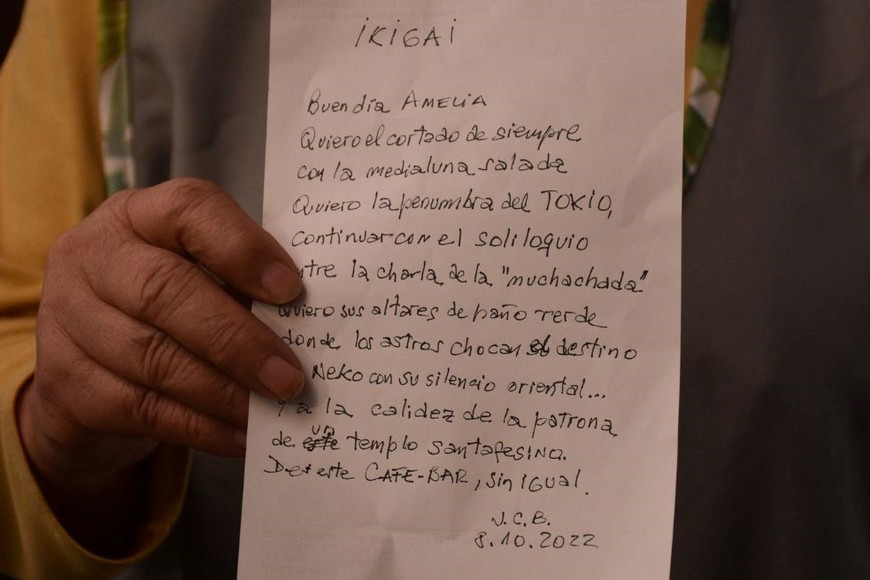 iKiGAi
Buen día AMELiA
Quiero el cortado de siempre
con la medialuna salada
Quiero la penumbra del TOKIO,
continuar con el soliloquio
entre la charla de la "muchachada"
Quiero sus altares de paño verde
donde los astros chocan el destino
Neko con su silencio oriental...
Y a la calidez de la patrona
de un templo santafesino.
De este CAFE-BAR, sin iGUAL.
J.C.B.
8.10.2022